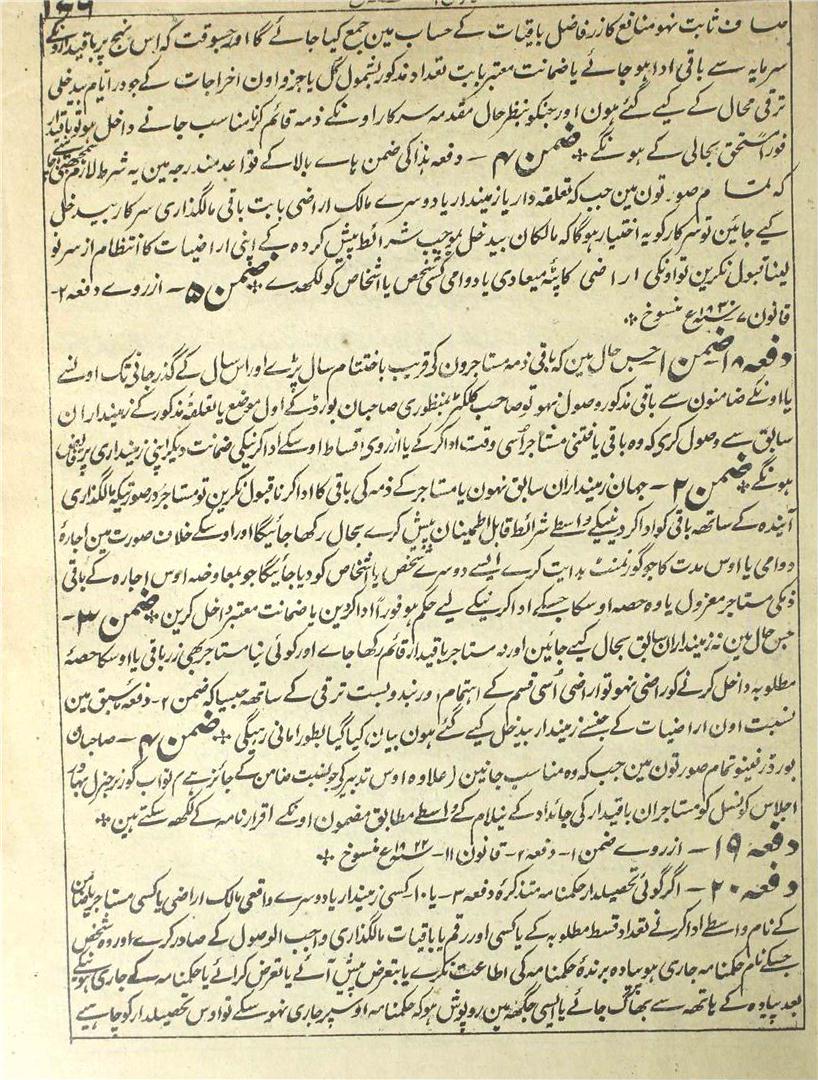 صاف ثابت نہو منافع کا زر فاضل باقیات کے حساب مین جمع کیا جائے گا اور جسوقت کہ اس نہج پر باقیدارونکے
سرمایہ سے باقی ادا ہو جائے یا ضمانت معتبر بابت تعداد مذکور بشمول کل یا جزو اون اخراجات کے جو در ایام بیدخلی
ترقی محال کے کیے گئے ہون اور جنکو بنظر حال مقدمہ سرکار اونکے ذمہ قائم کرنا مناسب جانے داخل ہو تو باقیدار
فوراً مستحق بحالی کے ہونگے ٭ ضمن ۴ — دفعہ ہذا کی ضمن ہاے بالا کے قواعد مندرجہ مین یہ شرط لازم سمجھنی چاہیے
کہ تمام صورتون مین جب کہ تعلقہ دار یا زمیندار یا دوسرے مالک اراضی بابت باقی مالگذاری سرکار بیدخل
کیے جائین تو سرکار کو یہ اختیار ہوگا کہ مالکان بیدخل بموجب شرائط پیش کردہ کے اپنی اراضیات کا انتظام از سر نو
لینا قبول نکرین تو اونکی اراضی کا پٹہ میعادی یا دوامی کسی شخص یا اشخاص کو لکھدے ٭ ضمن ۵ — از روے دفعہ ۲-
قانون ۷ سنہ ۱۸۳۰ع منسوخ ٭
دفعہ ۱۸ ضمن ۱ — جس حال مین کہ باقی ذمہ مستاجرون کی قریب باختتام سال پڑے اور اس سال کے گذر جانے تک اونسے
یا اونکے ضامنون سے باقی مذکور وصول نہو تو صاحب کلکٹر بمنظوری صاحبان بورڈ کے اول موضع یا تعلقہ مذکور کے زمینداران
سابق سے وصول کری کہ وہ باقی یافتنی مستاجر اُسی وقت ادا کر کے یا ازروی اقساط اوسکے ادا کرنیکی ضمانت دیکر اپنی زمینداری پر قابض
ہونگے ٭ ضمن ۲ — جہان زمینداران سابق نہون یا مستاجر کے ذمہ کی باقی کا ادا کرنا قبول نکرین تو مستاجر درصورتیکہ مالگذاری
آیندہ کے ساتھ باقی کو ادا کر دینیکے واسطے شرائط قابل اطمینان پیش کرے بحال رکھا جائیگا اور اوسکے خلاف صورت مین اجارہٴ
دوامی یا اوس مدت کا جو گورنمنٹ ہدایت کرے ایسے دوسرے شخص یا اشخاص کو دیا جائیگا جو بمعاوضہ اوس اجارہ کے باقی
ذمگی مستاجر معزول یا وہ حصہ اوسکا جسکے ادا کرنیکے لیے حکم ہو فوراً ادا کردین یا ضمانت معتبر داخل کرین ٭ ضمن ۳ —
جس حال مین نہ زمینداران سابق بحال کیے جائین اور نہ مستاجر باقیدار قائم رکھا جاے اور کوئی نیا مستاجر بھی زر باقی یا اوسکا حصہٴ
مطلوبہ داخل کرنے کو راضی نہو تو اراضی اُسی قسم کے اہتمام اور بندوبست ترقی کے ساتھ جیسا کہ ضمن ۲- دفعہ ماسبق مین
نسبت اون اراضیات کے جنسے زمیندار بیدخل کیے گئے ہون بیان کیا گیا بطور امانی رہیگی ٭ ضمن ۴ — صاحبان
بورڈ رفینو تمام صورتون مین جب کہ وہ مناسب جانین (علاوہ اوس تدبیر کے جو بنسبت ضامن کے جائز ہے) نواب گورنر جنرل بہادر
اجلاس کونسل کو مستاجران باقیدار کی جائداد کے نیلام کے واسطے مطابق مضمون اونکے اقرارنامہ کے لکھہ سکتے ہین ٭
دفعہ ۱۹ — از روے ضمن ۱- دفعہ ۲- قانون ۱۱- سنہ ۱۸۲۲ع منسوخ ٭
دفعہ ۲۰ — اگر کوئی تحصیلدار حکمنامہ متذکرہٴ دفعہ ۳- یا ۱۰ کسی زمیندار یا دوسرے واقعی مالک اراضی یا کسی مستاجر یا ضامن
کے نام واسطے ادا کرنے تعداد قسط مطلوبہ کے یا کسی اور رقم یا باقیات مالگذاری واجب الوصول کے صادر کرے اور وہ شخص
جسکے نام حکمنامہ جاری ہو پیادہ برندہٴ حکمنامہ کی اطاعت نکرے یا بتعرض پیش آئے یا تعرض کرائے یا حکمنامہ کے جاری ہونیکے
بعد پیادہ کے ہاتھہ سے بھاگ جائے یا ایسی جگھہ مین روپوش ہو کہ حکمنامہ اوسپر جاری نہو سکے تو اوس تحصیلدار کو چاہیے